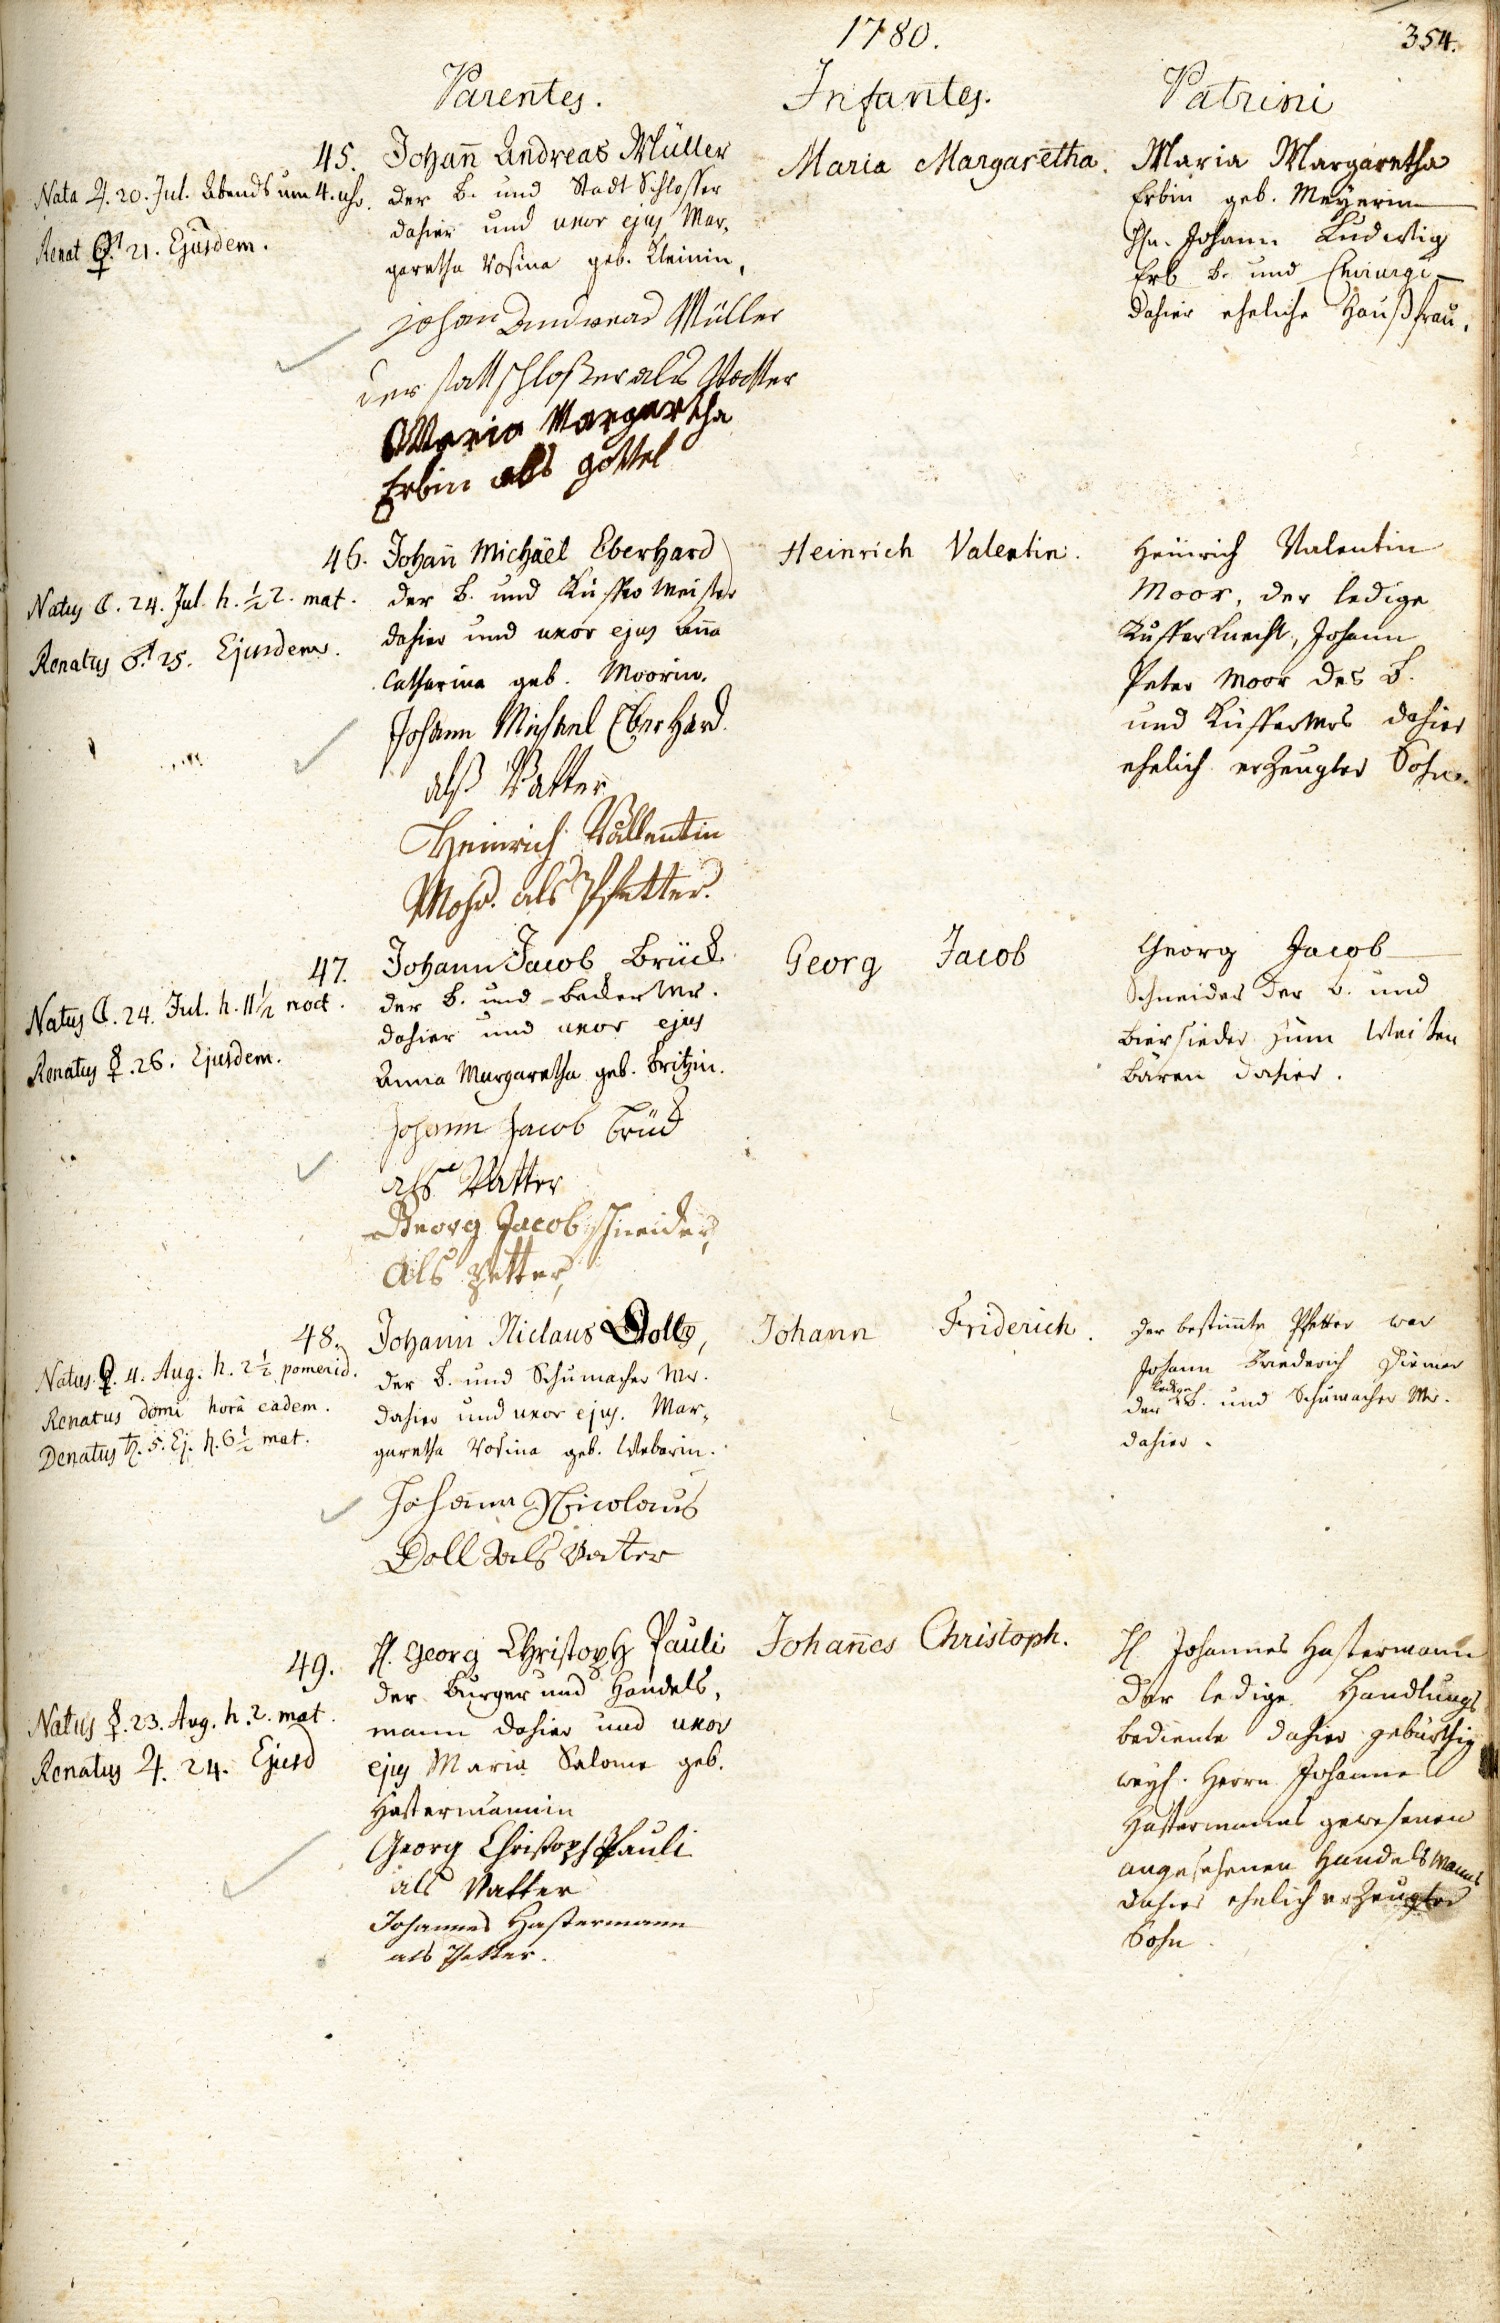 1780.
354.
Parentes.
Infantes.
Patrini
45.
Nata ♃. 20. Jul. Abends um 4. uhr.
Renat ♀ 21. Ejusdem.
Johañ Andreas Müller
der B. und Stadt Schlosser
dahier und uxor ejus Mar-
garetha Rosina geb. Kleinin,
Johan Andreas Müller
der statt schloßer als Vatter
Maria Margartha
Erbin als gottel
Maria Margaretha.
Maria Margaretha
Erbin geb. Meyerin
Hn. Johann Ludwig
Erb B. und Chirurgi
dahier eheliche Haußfrau.
46.
Natus ☾. 24. Jul. h. ½ 2. mat.
Renatus ♂. 25. Ejusdem.
Johañ Michäel Eberhard
der B. und Küffer Meister
dahier und uxor ejus Aña
Catharina geb. Moorin.
Johann Michael Eberhard
alß Vatter
Heinrich Vallentin
Mohr. als Pfetter.
Heinrich Valentin.
Heinrich Valentin
Moor, der ledige
Küfferknecht, Johann
Peter Moor des B.
und Küffermrs dahier
ehelich erzeugter Sohn.
47.
Natus ☾. 24. Jul. h. 11½ noct.
Renatus ☿. 26. Ejusdem.
Johann Jacob Brück
der B. und Becker Mr.
dahier und uxor ejus
Anna Margaretha geb. Britzin.
Johann Jacob Brück
alß Vatter
Georg Jacob schneider,
als petter,
Georg Jacob
Georg Jacob
Schneider der B. und
Biersieder zum Weisen
Bären dahier.
48.
Natus ♀. 4. Aug. h. 2½ pomerid.
Renatus domi horâ eadem.
Denatus ♄. 5. Ej. h. 6½ mat.
Johann Niclaus Doll,
der B. und Schumacher Mr.
dahier und uxor ejus. Mar-
garetha Rosina geb. Weberin.
Johann Nicolaus
Doll als Vater
Johann Friderich.
Der bestimte Pfetter war
Johann Friederich
ledige
der B. und Schumacher Mr.
dahier.
49.
Natus ☿. 23. Aug. h. 2. mat.
Renatus ♃. 24. Ejusd
H. Georg Christoph Pauli
der Burger und Handels-
mann dahier und uxor
ejus Maria Salome geb.
Hastermännin
Georg Christoph Pauli
als Vatter
Johannes Hastermann
als Petter.
Johañes Christoph.
H. Johannes Hastermann
der ledige Handlungs
bediente dahier gebürthig
weyl. Herrn Johann
Hastermanns gewesenen
angesehenen Handelsmanns
dahier ehelich erzeugter
Sohn.